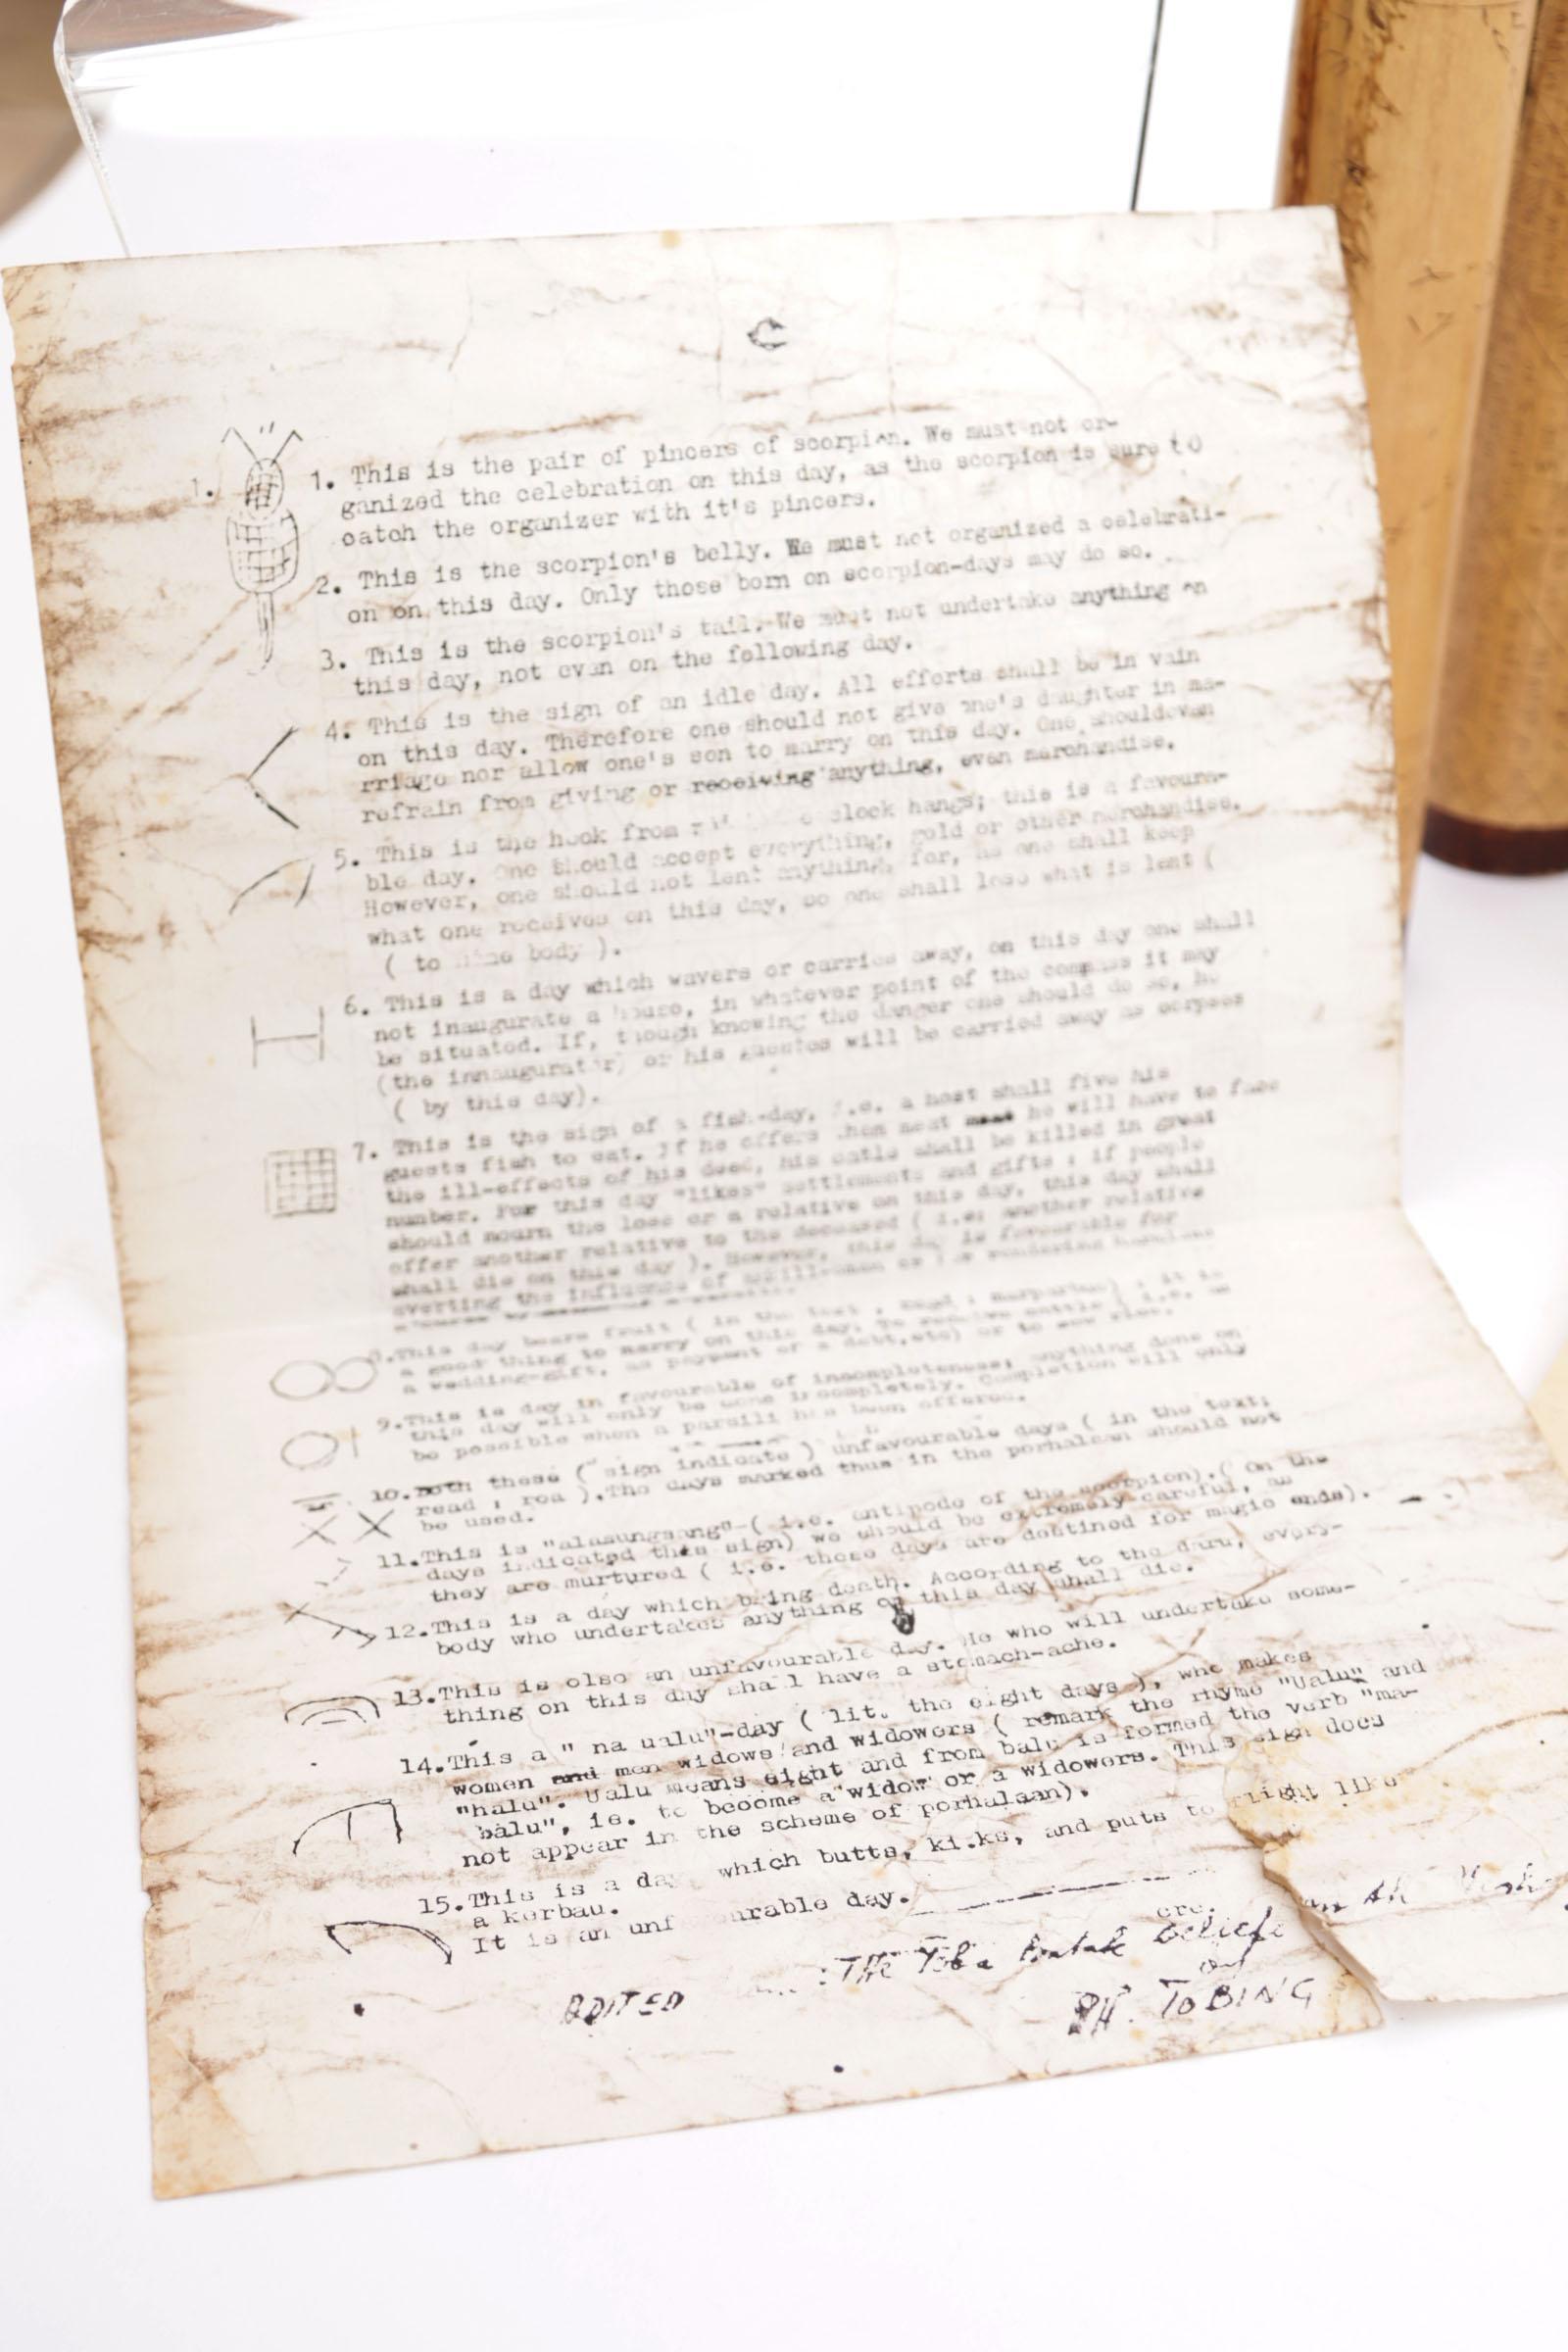 C
1. 1. This is the pair of pincers of scorpion. We must not or-
ganized the celebration on this day, as the scorpion is sure to
catch the organizer with it's pincers.
2. This is the scorpion's belly. We must not organized a celebrati-
on on this day. Only those born on scorpion-days may do so.
3. This is the scorpion's tail. We must not undertake anything on
this day, not even on the following day.
4. This is the sign of an idle day. All efforts shall be in vain
on this day. Therefore one should not give one's daughter in ma-
rriage nor allow one's son to marry on this day. One should even
refrain from giving or receiving anything, even merchandise.
5. This is the hook from clock hangs; this is a favoura-
ble day. One should accept everything, gold or other merchandise.
However, one should not lent anything, for, as one shall keep
what one receives on this day, so one shall lose what is lent (
( to body ).
6. This is a day which wavers or carries away, on this day one shall
not inaugurate a house, in whatever point of the compass it may
be situated. If, though knowing the danger one should do so, he
(the innaugurator) or his guestes will be carried away as corpses
( by this day).
7. This is the sign of a fish-day, i.e. a host shall five his
guests fish to eat. If he offers them meat he will have to face
the ill-effects of his deed, his catle shall be killed in great
number. For this day "likes" settlements and gifts ; if people
should mourn the loss or a relative on this day, this day shall
offer another relative to the deceased ( i.e: another relative
shall die on this day ). However, this day is favourable for
averting the influence of or for rendering harmless
8.This day bears fruit ( in the text , ) , it is
a good thing to marry on this day, to receive cattle ( i.e. as
a wedding-gift, as payment or a debt,etc) or to sow rice.
9.This is day in favourable of incompleteness; anything done on
this day will only be done incompletely. Completion will only
be possible when a parsili has been offered.
10.Both these ( sign indicate ) unfavourable days ( in the text;
read ; roa ).The days marked thus in the porhalaan should not
be used.
11.This is "alasungsang"-( i.e. antipode of the scorpion).( On the
days indicated this sign) we should be extremely careful, as
they are murtured ( i.e. these days are destined for magic ends).
12.This is a day which bring death. According to the duru, every-
body who undertakes anything on this day shall die.
13.This is olso an unfavourable day. He who will undertake some-
thing on this day shall have a stomach-ache.
14.This a " na ualu"-day ( lit. the eight days ), who makes
women and men widows and widowers ( remark the rhyme "Ualu" and
"halu". Ualu means eight and from balu is formed the verb "ma-
balu", ie. to become a widow or a widowers. This sign does
not appear in the scheme of porhalaan).
15.This is a day which butts, kicks, and puts to flight like
a kerbau.
It is an unfavourable day.
EDITED : THE Toba batak beliefs in the
by
PH. TOBING